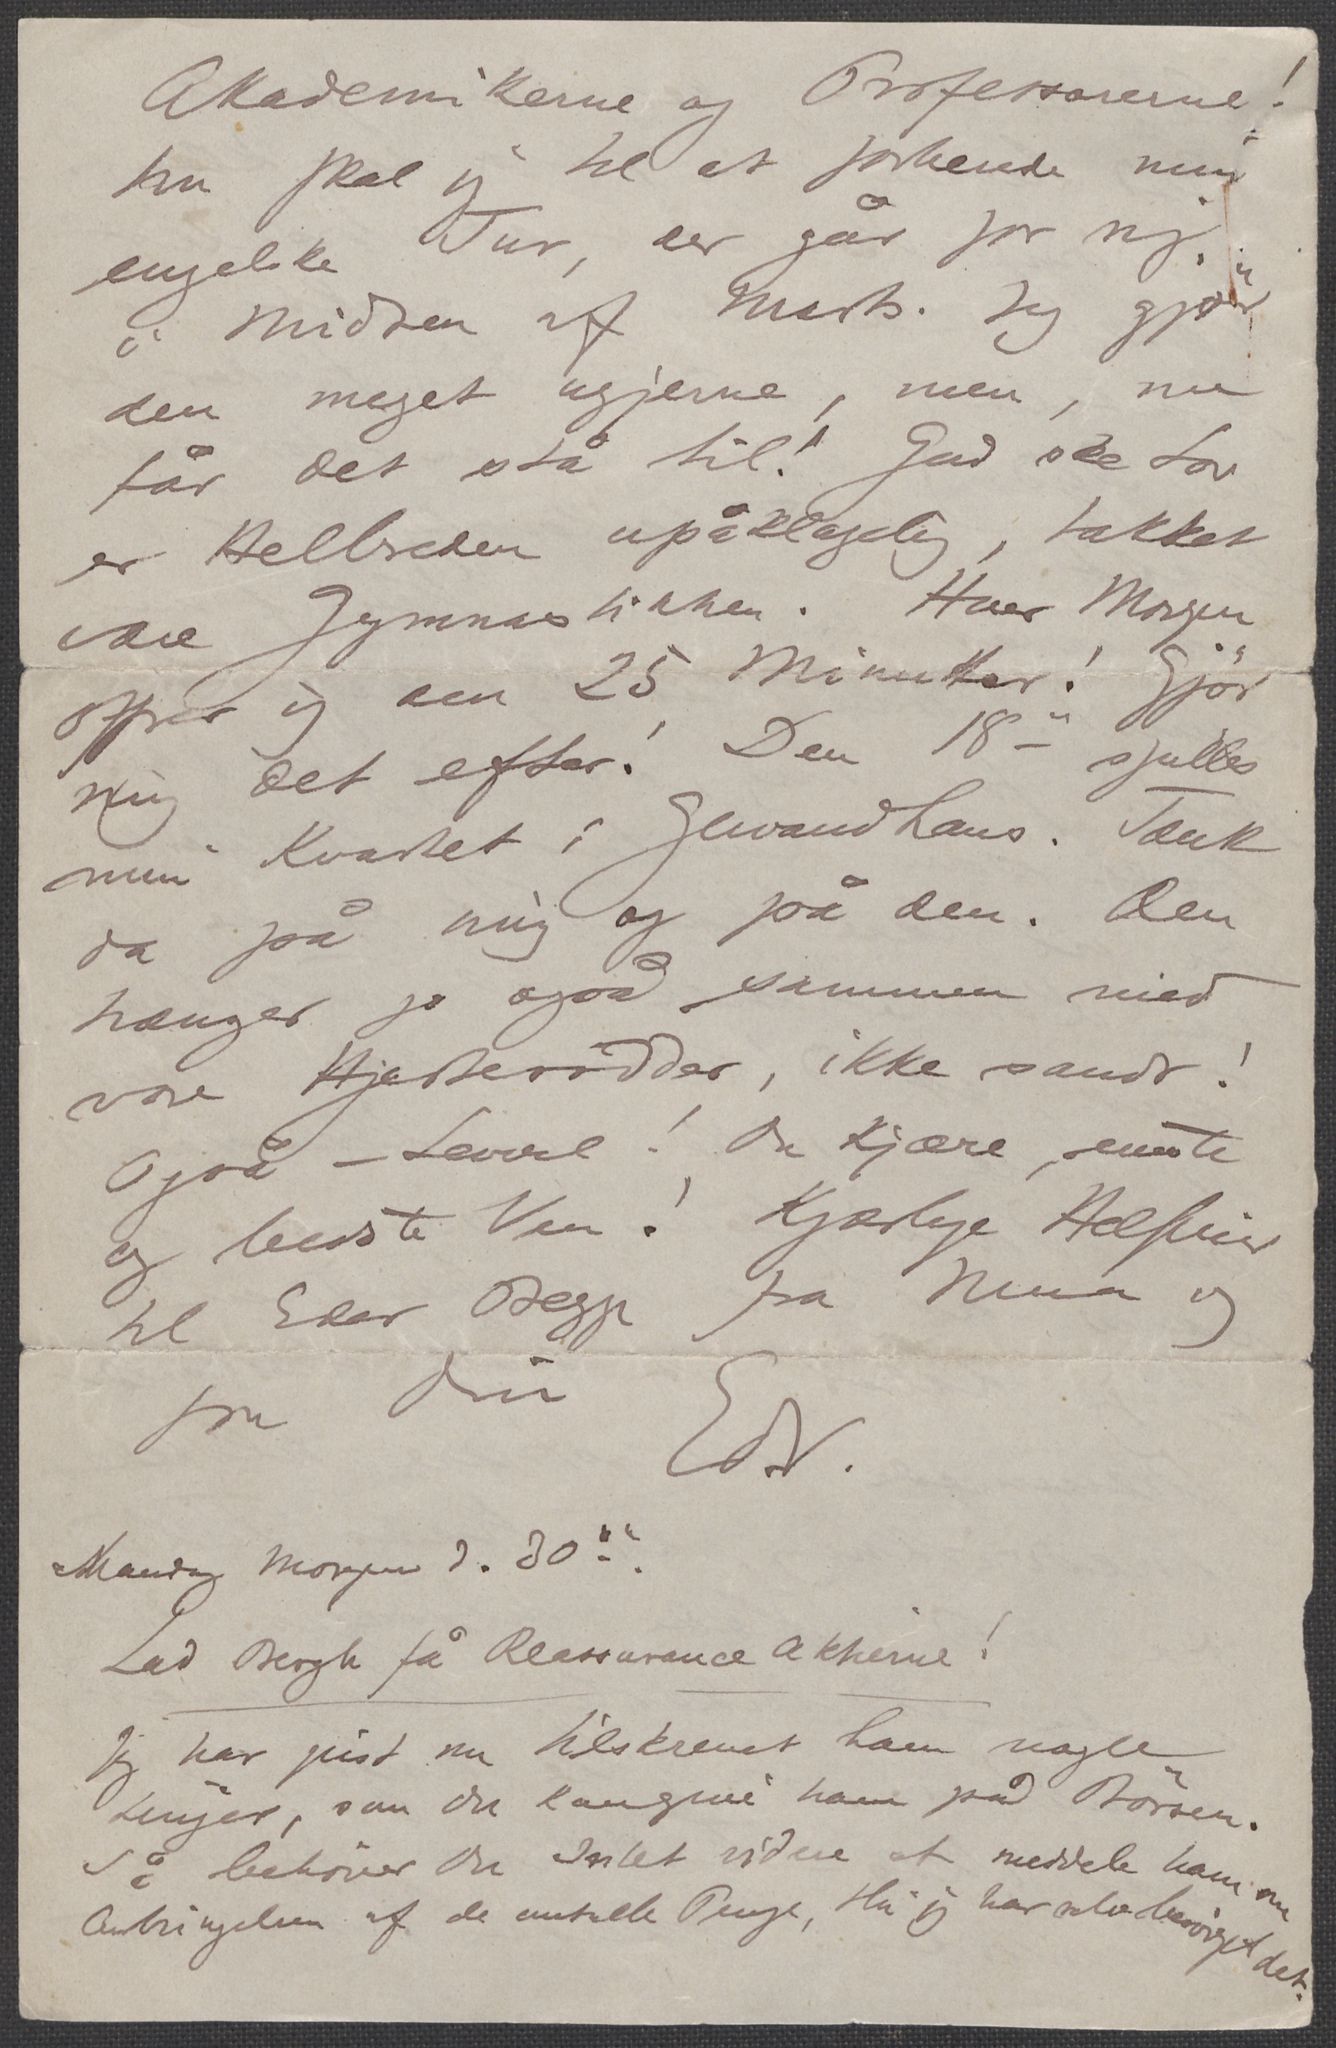 Akademikerne og Professorerne!
Nu skal jeg til at forberede min
engelske Tur, der går for sig
i Midten af Marts. Jeg gjør
den meget ugjerne, men, nu
får det stå til! Gud ske Lov
er Helbreden upåklagelig, takket
være Gymnastikken. Hver Morgen
ofrer jeg den 25 Minutter! Gjör
mig det efter! Den 18de spilles
min Kvartet i Gewandhaus. Tænk
da på mig og på den. Den
hænger jo også sammen med
vore Hjerterödder, ikke sandt!
Også – Levvel! Du kjære, eneste
og bedste Ven! Kjærlige Hilsner
til Eder Begge fra Nina og
fra Din Edv.
Mandag Morgen d. 30te.
Lad Bergh få Reassurance Aktierne!
Jeg har just nu tilskrevet ham nogle
Linjer, som Du kan give ham på Börsen.
Så behöver Du Intet videre at meddele ham om
Anbringelsen af de omtalte Penge, thi jeg har selv besörget det.